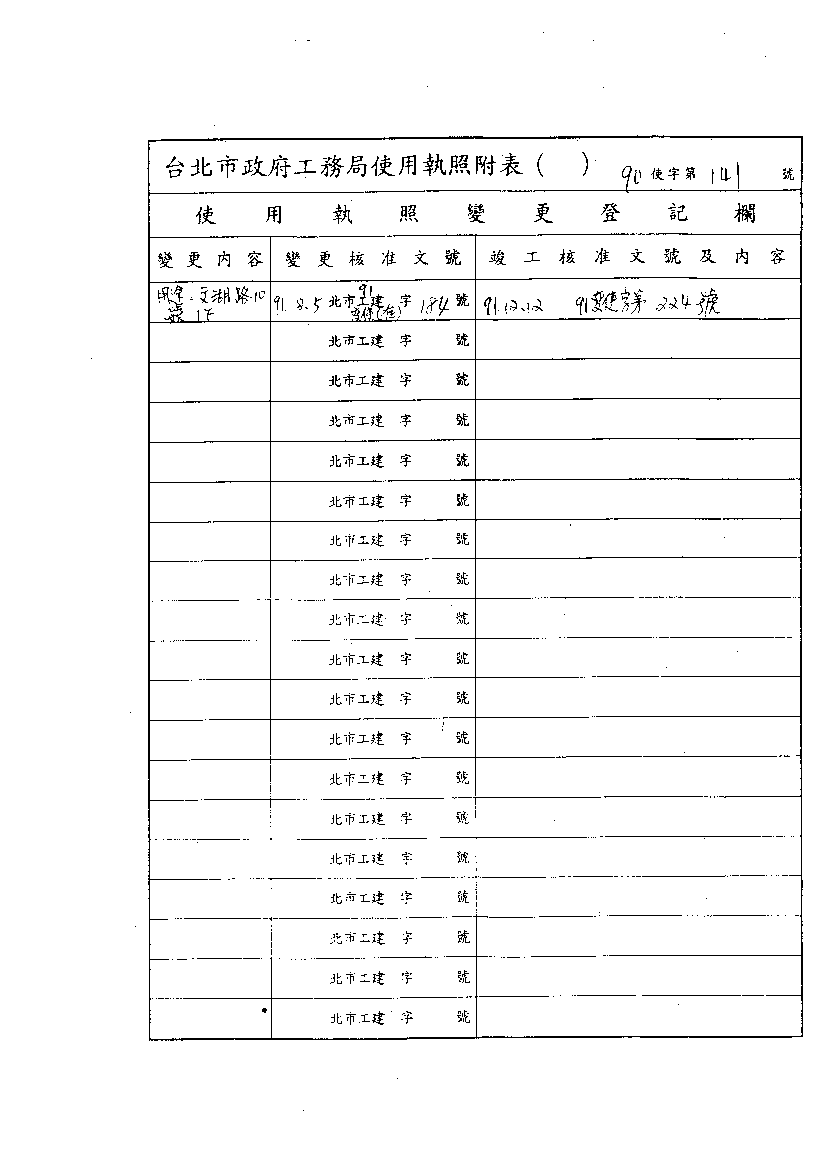 台北市政府工務局使用執照附表（　） 90 使字第 141 號
使用執照變更登記欄
變更內容 變更核准文號 竣工核准文號及內容
用途：文湖路10號1F 91.8.5 北市工建 91變使(准) 字 184 號 91.12.12 91變使字第 224 號
北市工建 字 號
北市工建 字 號
北市工建 字 號
北市工建 字 號
北市工建 字 號
北市工建 字 號
北市工建 字 號
北市工建 字 號
北市工建 字 號
北市工建 字 號
北市工建 字 號
北市工建 字 號
北市工建 字 號
北市工建 字 號
北市工建 字 號
北市工建 字 號
北市工建 字 號
北市工建 字 號